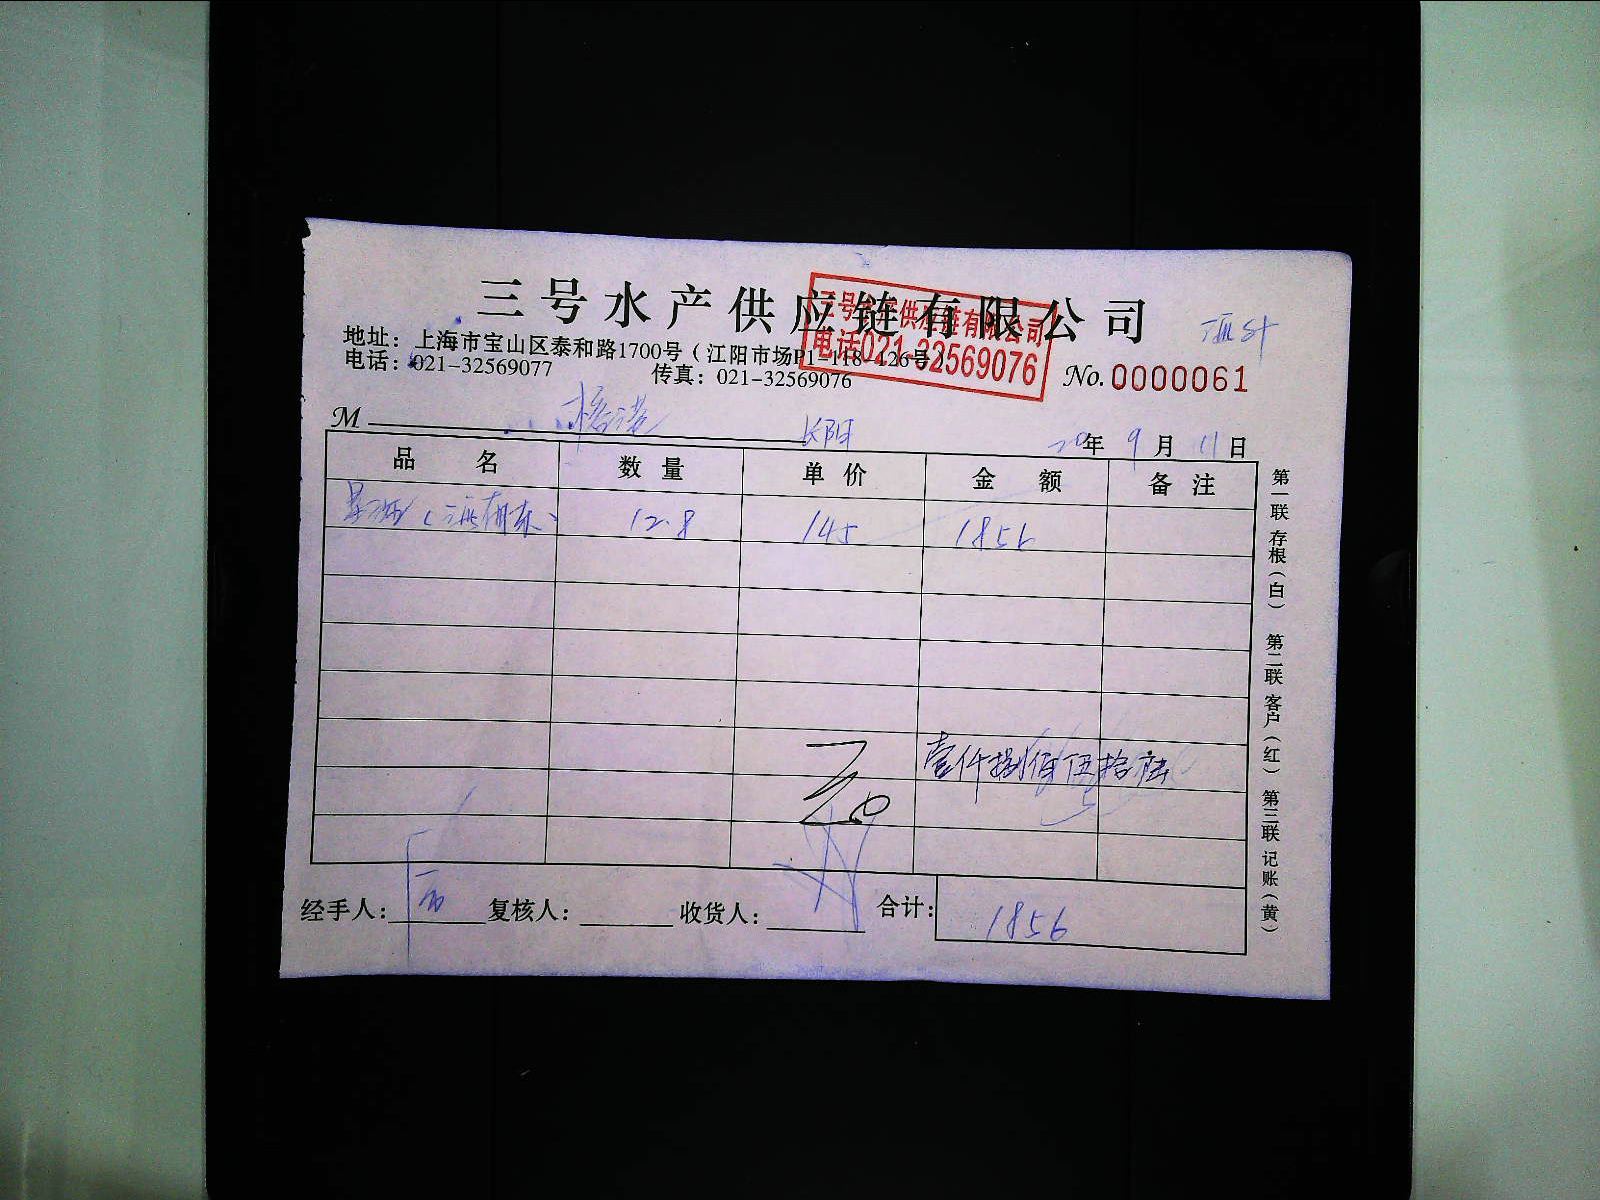 三号水产供应链有限公司
三号水产供应链有限公司
电话021-32569076
地址：上海市宝山区泰和路1700号（江阳市场P1-118-126号）
电话：021-32569077 传真：021-32569076
No.0000061
M 长阳 20年9月11日
品名 数量 单价 金额 备注
12.8 145 1856
壹仟捌佰伍拾陆
经手人： 复核人： 收货人： 合计：1856
第一联 存根（白） 第二联 客户（红） 第三联 记账（黄）